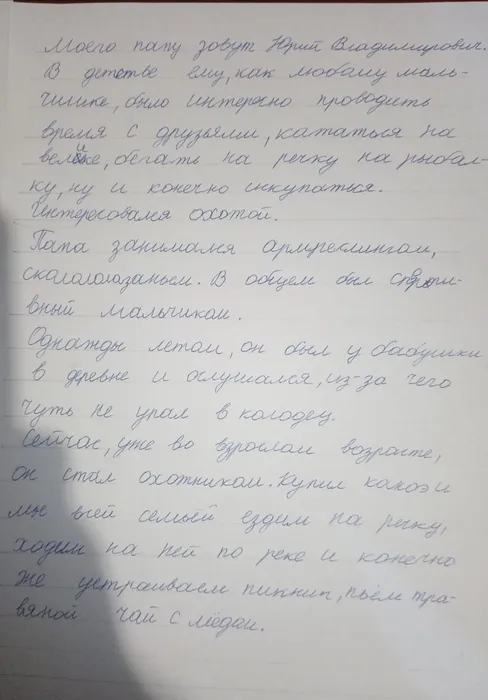 Моего папу зовут Юрий Владимирович.
В детстве ему, как любому маль-
чишке, было интересно проводить
время с друзьями, кататься на
велике, бегать на речку на рыбал-
ку, ну и конечно искупаться.
Интересовался охотой.
Папа занимался армреслингом,
скалолазаньем. В общем был спорти-
вный мальчиком.
Однажды летом, он был у бабушки
в деревне и ослушался, из-за чего
чуть не упал в колодец.
Сейчас, уже во взрослом возрасте,
он стал охотником. Купил каноэ и
мы всей семьёй ездим на речку,
ходим на ней по реке и конечно
же устраиваем пикник, пьём тра-
вяной чай с мёдом.